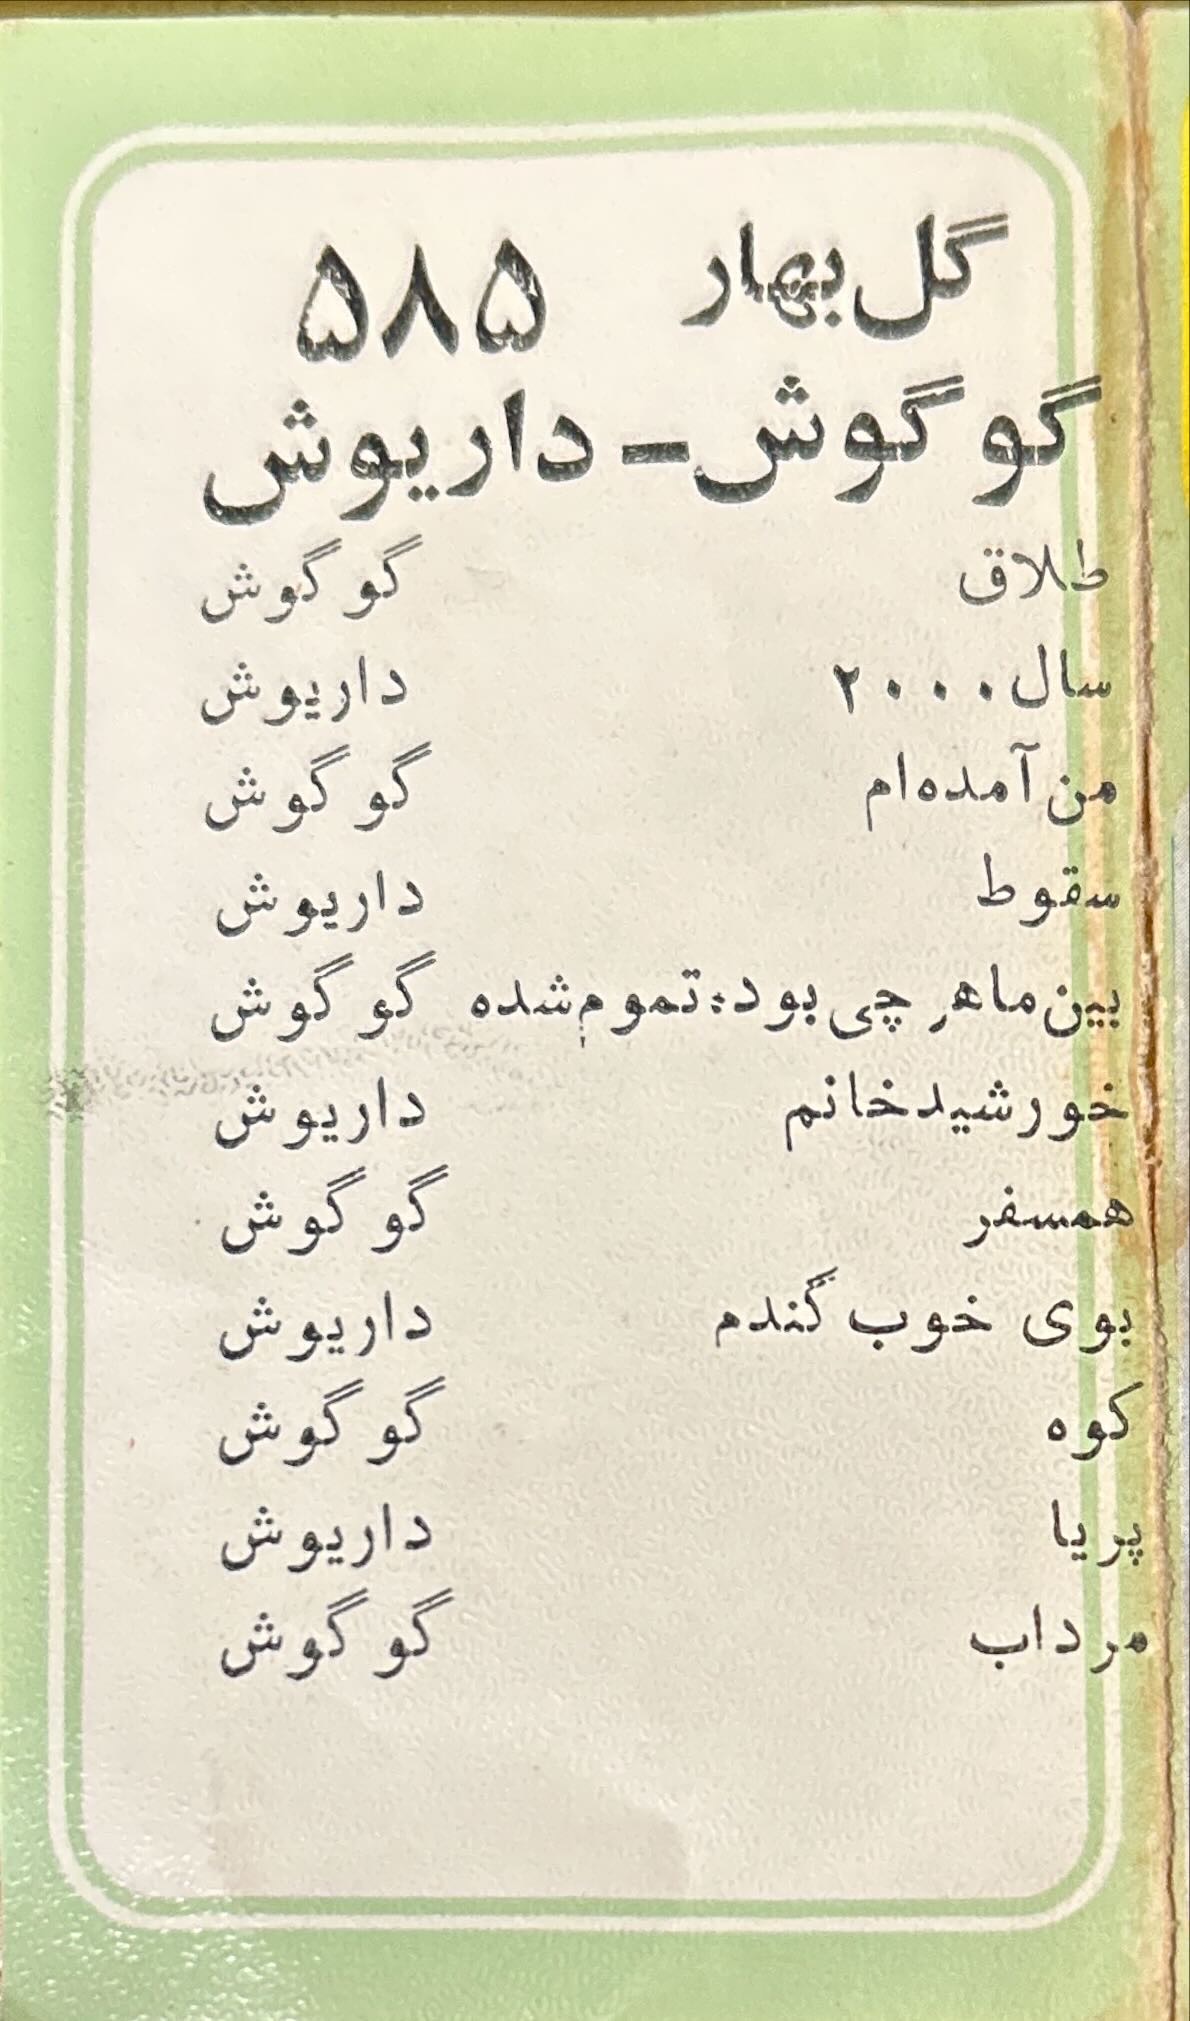 گل بهار ۵۸۵
گو گوش - داریوش
طلاق گو گوش
سال ۲۰۰۰ داریوش
من آمده‌ام گو گوش
سقوط داریوش
بین ما هر چی بود، تموم شده گو گوش
خورشید خانم داریوش
همسفر گو گوش
بوی خوب گندم داریوش
کوه گو گوش
پریا داریوش
مرداب گو گوش